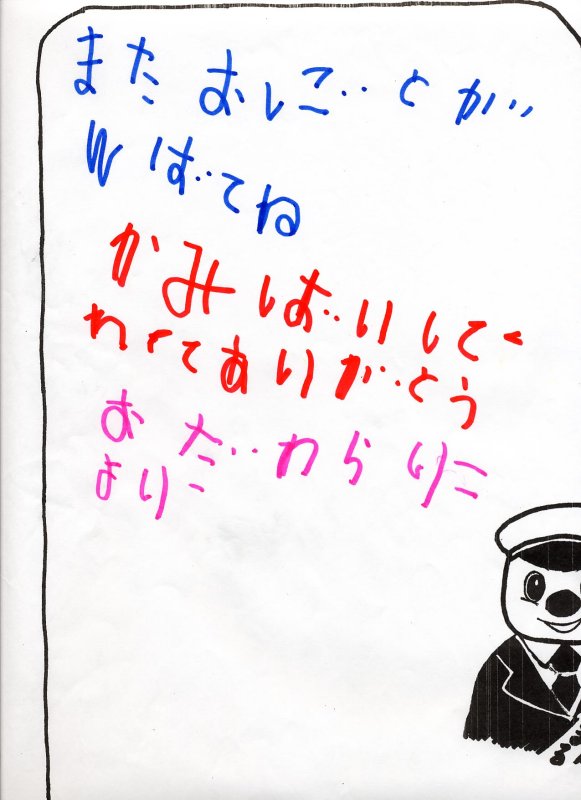 また おしごとが
んばてね
かみしばいしてく
れてありがとう
おだわらりこ
より